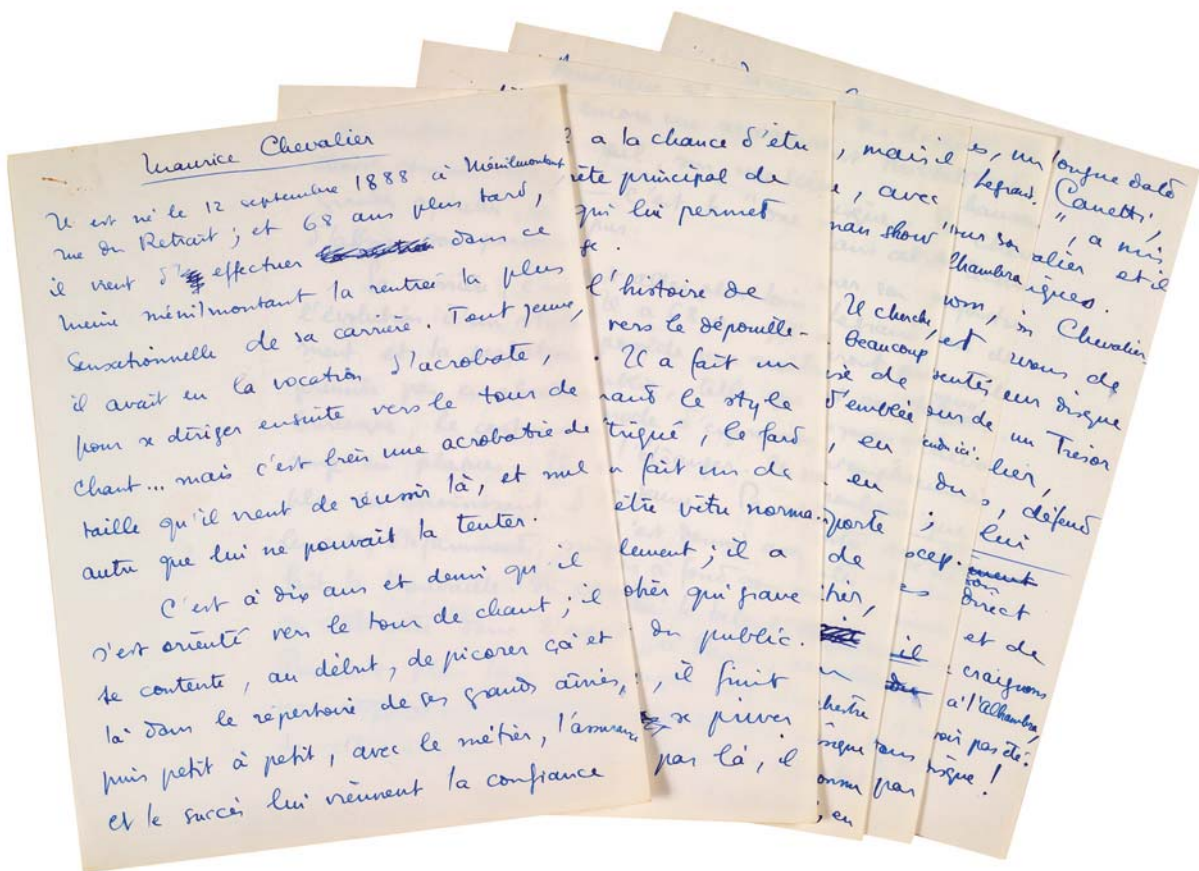 Maurice Chevalier
Il est né le 12 septembre 1888 à Ménilmontant
rue du Retrait ; et 68 ans plus tard,
il vient d' effectuer dans ce
même ménilmontant la rentrée la plus
sensationnelle de sa carrière. Tout jeune,
il avait eu la vocation d'acrobate,
pour se diriger ensuite vers le tour de
chant... mais c'est bien une acrobatie de
taille qu'il vient de réussir là, et nul
autre que lui ne pouvait la tenter.
C'est à dix ans et demi qu'il
s'est orienté vers le tour de chant ; il
se contente, au début, de picorer çà et
là dans le répertoire de ses grands aînés,
puis petit à petit, avec le métier, l'assurance
et le succès lui viennent la confiance
a la chance d'être
principal de
qui lui permet
l'histoire de
vers le dépouille-
. Il a fait un
le style
, le fard
fait un de
être vêtu norma-
lement ; il a
qui grave
du public.
, il finit
se priver
par là, il
, mais il
, avec
man show
Il cherche,
beaucoup
de
d'emblée
, en
en
porte
de
orchestre
en
Legrand.
sur son
Alhambra
ici.
;
il
tous
par
, un
et
de
lui
direct
et de
longue date
Canetti,
", a mis
et il
Chevalier
vous de
disque
un Trésor
, défend
craignons
à l'Alhambra,
pas été.
!